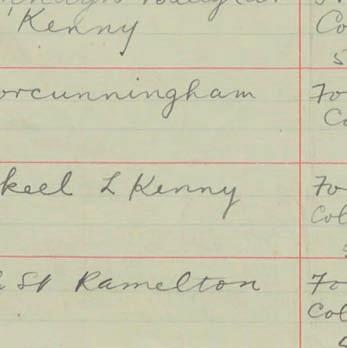 Kenny
Co
5
orcunningham
Fo
Co
keel L Kenny
Fo
Col
St Ramelton
Fo
Col